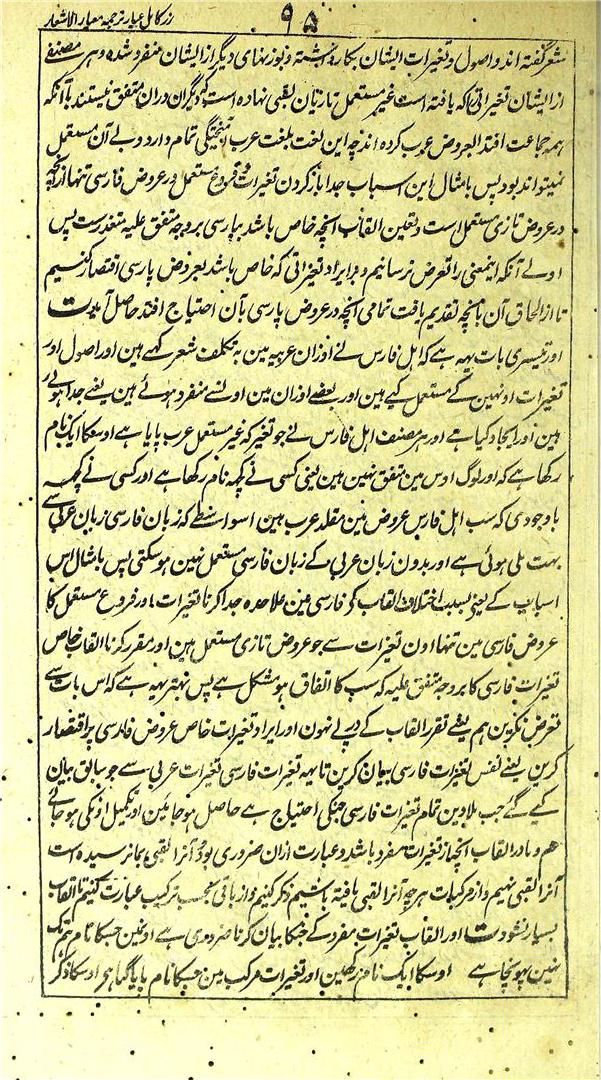 زر کامل عیار ترجمہ معیار الاشعار
۹۵
شعر گفته اند و اصول و تغیرات ایشان بکار داشته و بوزنهای دیگر از ایشان منفرد شده و هر مصنفے
از ایشان تغیراتی که یافته است غیر مستعمل تازیان لقبی نهاده است که دیگران دران متفق نیستند با آنکه
همه جماعت اقتدا بعروض عرب کرده اند چه این لغت بلغت عرب آمیختگی تمام دارد و بے آن مستعمل
نمیتواند بود پس بامثال این اسباب جدا باز کردن تغیرات و فروع مستعمل در عروض فارسی تنها از آنچه
در عروض تازی مستعمل است و تعین القاب آنچه خاص باشد بپارسی بر وجه متفق علیه متعذر ست پس
اولے آنکه اینمعنی را تعرض نرسانیم و بر ایراد تغیراتی که خاص باشد بعروض پارسی اقتصار کنیم
تا از الحاق آن بآنچه تقدیم یافت تمامی آنچه در عروض پارسی بآن احتیاج افتد حاصل آید ت
اور تیسری بات یہہ ہے کہ اہل فارس نے اوزان عربیہ مین بہ تکلف شعر کہے ہین اور اصول اور
تغیرات اونہین کے مستعمل کیے ہین اور بعضے اوزان مین اونسے منفرد ہوئے ہین یعنے جدا ہوئے
ہین اور ایجاد کیا ہے اور ہر مصنف اہل فارس نے جو تغیر کہ غیر مستعمل عرب پایا ہے اوسکا ایک نام
رکھا ہے کہ اور لوگ اوس مین متفق نہین ہین یعنی کسی نے کچہہ نام رکھا ہے اور کسی نے کچہہ
باوجودی کہ سب اہل فارس عروض مین مقلد عرب ہین اسواسطے کہ زبان فارسی زبان عربی سے
بہت ملی ہوئی ہے اور بدون زبان عربی کے زبان فارسی مستعمل نہین ہو سکتی پس بامثال اس
اسباب کے یعنی بسبب اختلاف القاب کے فارسی مین علاحدہ جدا کرنا تغیرات اور فروع مستعمل کا
عروض فارسی مین تنہا اون تغیرات سے جو عروض تازی مستعمل ہین اور مقرر کرنا القاب خاص
تغیرات فارسی کا بر وجہ متفق علیہ کہ سب کا اتفاق ہو مشکل ہے پس بہتر یہہ ہے کہ اس بات سے
تعرض نکرین ہم یعنے تقرر القاب کے درپے نہون اور ایراد تغیرات خاص عروض فارسی پر اقتصار
کرین یعنے نفس تغیرات فارسی بیان کرین تا یہہ تغیرات فارسی تغیرات عربی سے جو سابق بیان
کیے گئے جب ملاوین تمام تغیرات فارسی جنکی احتیاج ہے حاصل ہو جائین اور تکمیل اونکی ہو جائے
هم و ما در القاب آنچه از تغیرات مفرد باشد و عبارت ازان ضروری بود و آنرا لقبی بما نرسیده است
آنرا لقبی نهیم و از مرکبات هرچه آنرا لقبی یافته باشیم ذکر کنیم و از باقی بحسب ترکیب عبارت کنیم تا القاب
بسیار نشود ت اور القاب تغیرات مفرد کے جنکا بیان کرنا ضروری ہے اونمین جسکا نام ہم تک
نہین پہونچا ہے اوسکا ایک نام رکھین اور تغیرات مرکب مین جسکا نام پایا گیا ہے اوسکا ذکر